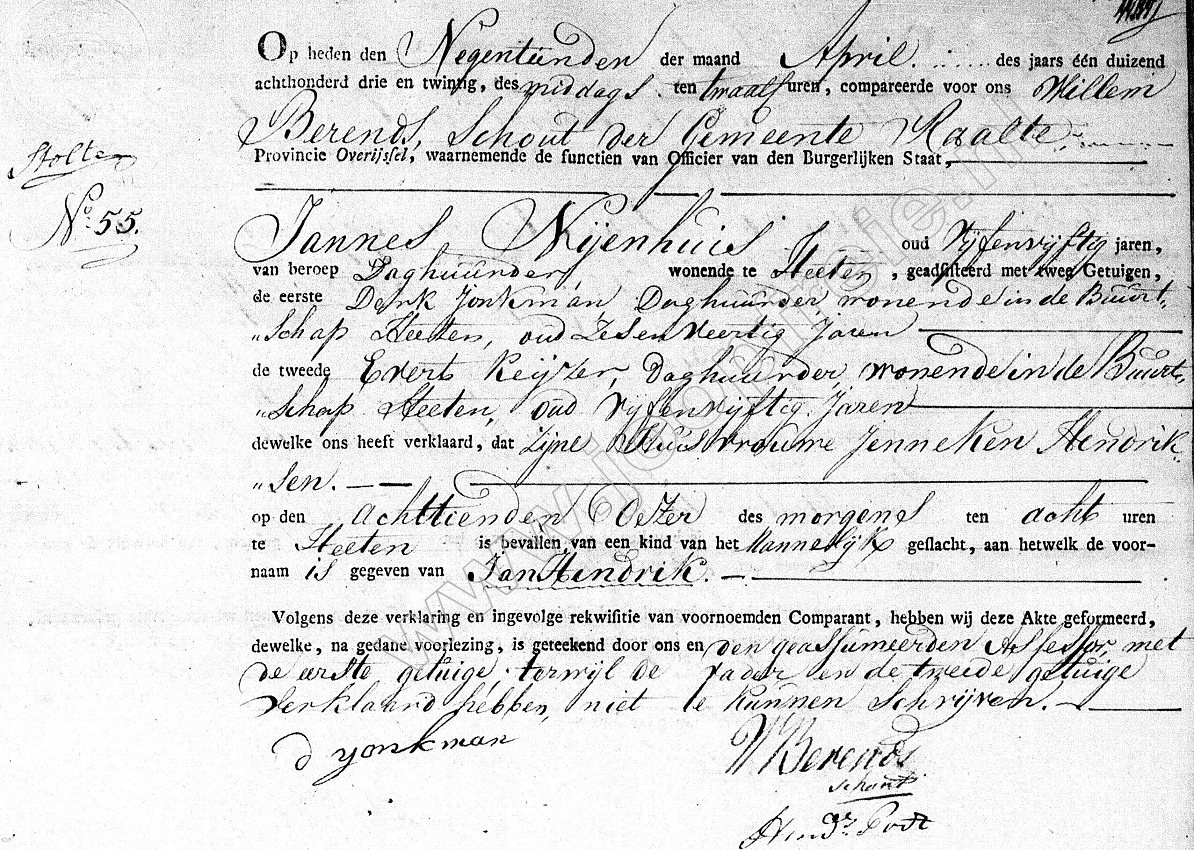 Op heden den Negentienden der maand April. des jaars één duizend
achthonderd drie en twintig, des middags ten twaalf uren, compareerde voor ons Willem
Berends, Schout der Gemeente Raalte,
Provincie Overijssel, waarnemende de functien van Officier van den Burgerlijken Staat,
Stolten
No. 55.
Jannes Nijenhuis oud Vijfenvijftig jaren,
van beroep Daghuurder wonende te Heeten, geadsisteerd met twee Getuigen,
de eerste Derk Jonkman, Daghuurder wonende in de Buurt-
„Schap Heeten, oud Zes en Veertig Jaren
de tweede Evert Keijzer, Daghuurder, wonende in de Buurt-
„Schap Heeten, oud Vijfenvijftig Jaren
dewelke ons heeft verklaard, dat Zijne Huisvrouwe Jenneken Hendrik-
„sen.
op den Achttienden Dezer des morgens ten acht uren
te Heeten is bevallen van een kind van het Mannelijk geslacht, aan hetwelk de voor-
naam is gegeven van Jan Hendrik.
Volgens deze verklaring en ingevolge rekwisitie van voornoemden Comparant, hebben wij deze Akte geformeerd,
dewelke, na gedane voorlezing, is geteekend door ons en den geassumeerden Assessor, met
de eerste getuige, terwijl de Vader en de tweede getuige
Verklaard hebben, niet te kunnen Schrijven.
d yonkman
W Berends
schout
Hendr. Post